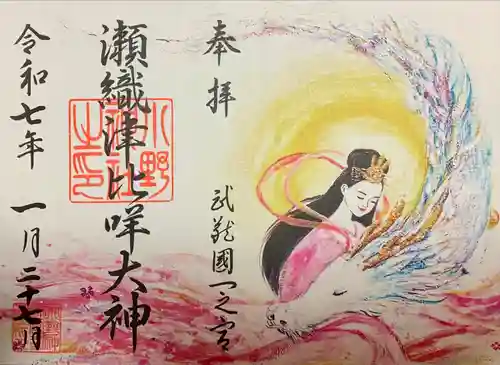 奉拝
武蔵國一之宮
瀬織津比咩大神
小野神社之印
令和七年
一月二十七日